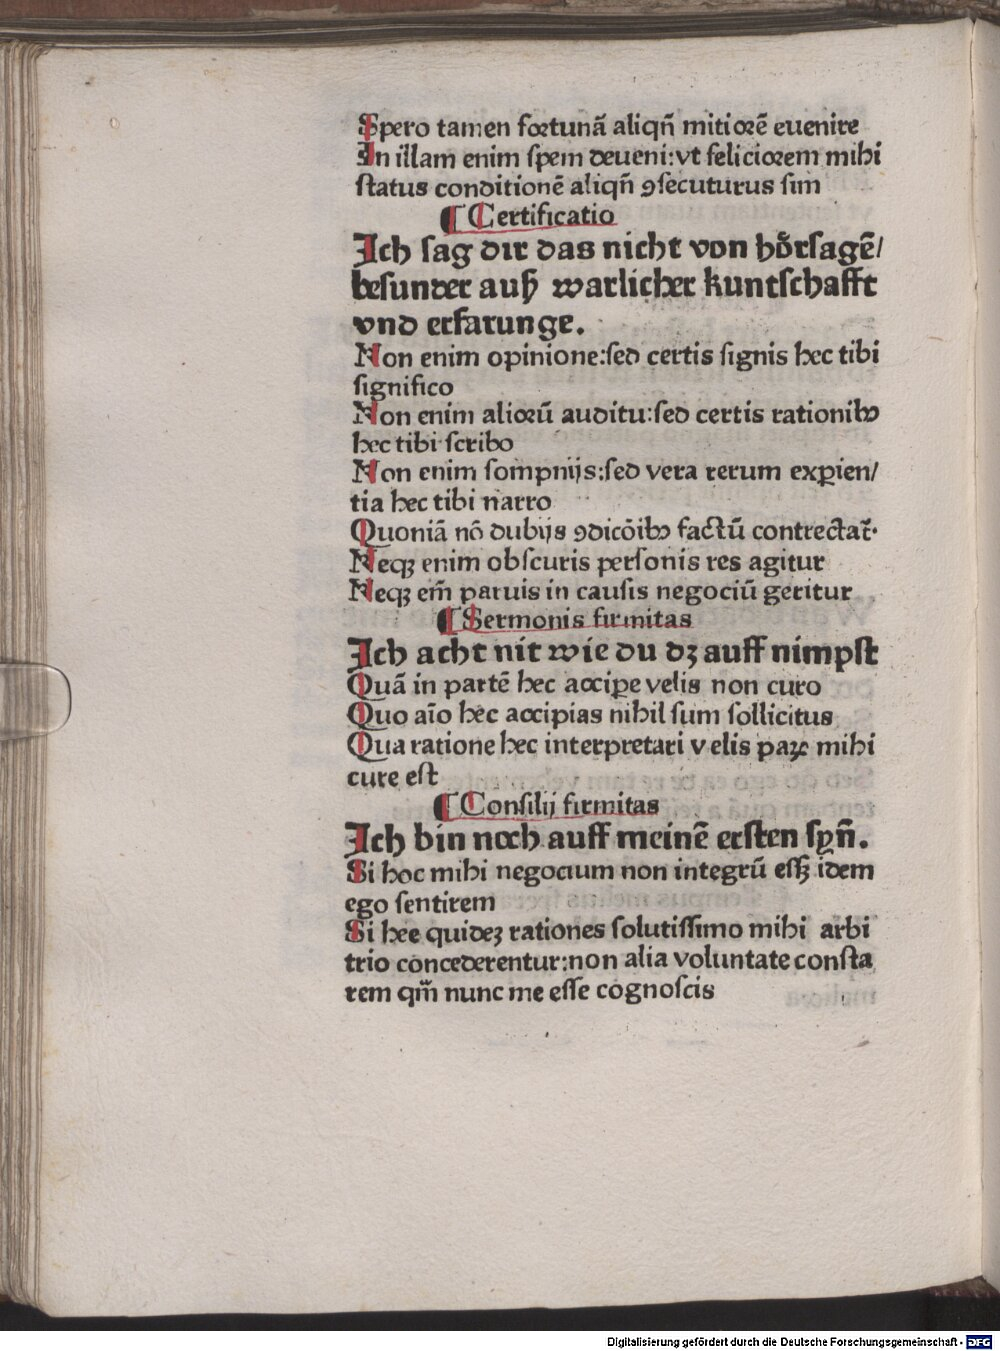 Spero tamen fortunã aliqñ mitiorẽ euenire
In illam enim spem deueni:vt feliciorem mihi
status conditionẽ aliqñ ꝯsecuturus sim
¶ Certificatio
Ich sag dir das nicht von hoͤrsagẽ/
besunder auß warlicher kuntschafft
vnd erfarunge.
Non enim opinione:sed certis signis hec tibi
significo
Non enim aliorũ auditu:sed certis rationibꝰ
hec tibi scribo
Non enim sompnijs:sed vera rerum exꝑien/
tia hec tibi narro
Quoniã nõ dubijs ꝯdicõibꝰ factũ contrectat᷑.
Neqꝫ enim obscuris personis res agitur
Neqꝫ em̃ paruis in causis negociũ geritur
¶ Sermonis firmitas
Ich acht nit wie du dꝫ auff nimpst
Quã in partẽ hec acciꝑe velis non curo
Quo aĩo hec accipias nihil sum sollicitus
Qua ratione hec interpretari velis paꝝ mihi
cure est
¶ Consilij firmitas
Ich bin noch auff meinẽ ersten syñ.
Si hoc mihi negocium non integrũ essꝫ idem
ego sentirem
Si hee quideꝫ rationes solutissimo mihi arbi
trio concederentur:non alia voluntate consta
rem qm̃ nunc me esse cognoscis
Digitalisierung gefördert durch die Deutsche Forschungsgemeinschaft - DFG